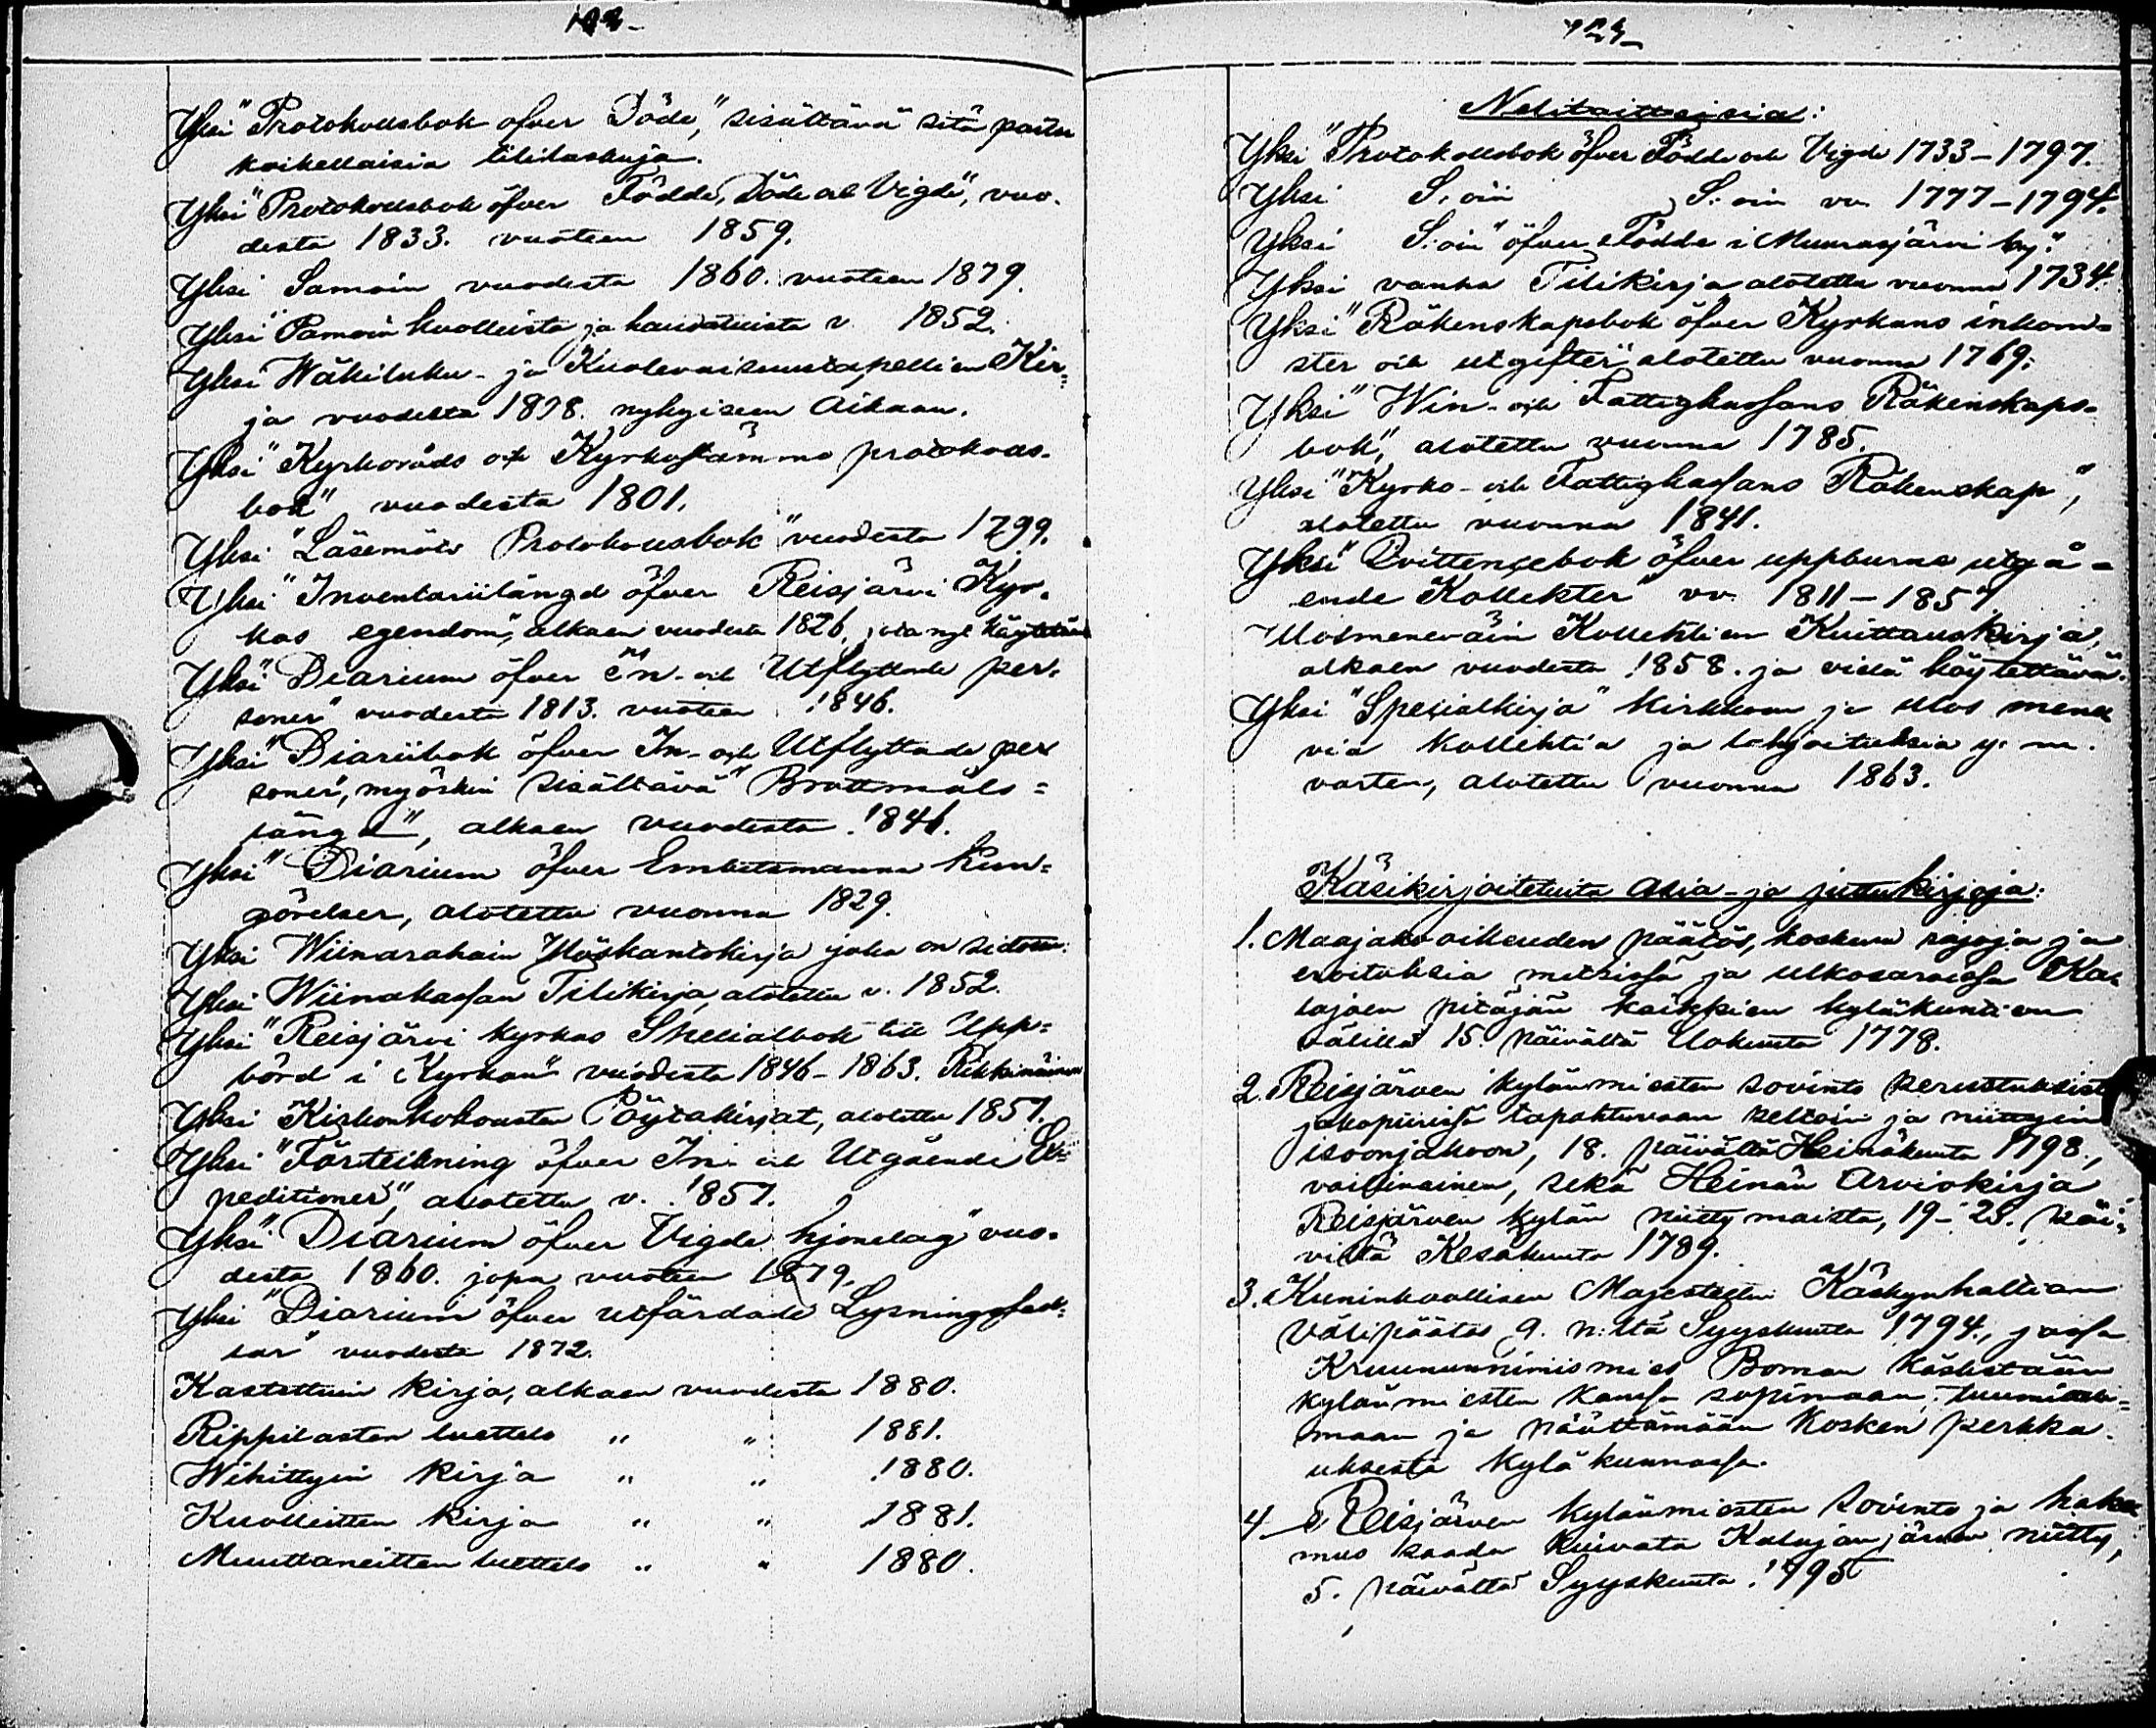 Yksi "Protokollsbok öfver Döde," sisältävä sitä paitsi
kaikellaisia tililaskuja.
Yksi "Protokollsbok öfver Födde, Döde och Vigde", vuo-
desta 1833. vuoteen 1859.
Yksi Samoin vuodesta 1860. vuoteen 1879.
Yksi Samoin kuolleista ja haudatuista v. 1852.
Yksi Wäkiluku- ja Kuolevaisuustapellien Kir=
ja vuodesta 1878. nykyiseen Aikaan.
Yksi "Kyrkoråds och Kyrkostämmo protokolls-
bok" vuodesta 1801.
Yksi "Läsemöts Protokollsbok" vuodesta 1799.
Yksi "Inventariilängd öfver Reisjärvi Kyr-
kas egendom", alkaen vuodesta 1826, jota nyt käytetään
Yksi "Diarium öfver In- och Utflyttade per-
soner" vuodesta 1813. vuoteen 1846.
Yksi "Diariibok öfver In- och Utflyttade per
soner", myöskin sisältävä "Brottmåls=
längd", alkaen vuodesta 1846.
Yksi "Diarium öfver Embetsmanna kun=
görelser, alotettu vuonna 1829.
Yksi Wiinarahain Uloskantokirja joka on sidottu.
Yksi Wiinakassan Tilikirja, alotettu v. 1852.
Yksi "Reisjärvi kyrkas Speciallbok till Upp=
börd i Kyrkan" vuodesta 1846-1863. Rikkinäinen
Yksi Kirkonkokousten Pöytäkirjat, alotettu 1857.
Yksi "Förteckning öfver In- och Utgående Ex=
peditioner", alotettu v. 1857.
Yksi "Diarium öfver Vigde hjonelag" vuo-
desta 1860. jopa vuoteen 1879.
Yksi "Diarium öfver utfärdade Lysningssed-
lar" vuodesta 1872.
Kastettuin kirja, alkaen vuodesta 1880.
Rippilasten luettelo " " 1881.
Wihittyin kirja " " 1880.
Kuolleitten kirja " " 1881.
Muuttaneitten luettelo " " 1880.
123-
Nelitaittoisia:
Yksi "Protokollsbok öfver Födde och Vigde 1733-1797.
Yksi S:oin S:oin vv. 1777-1794.
Yksi S:oin "öfver Födde i Muurasjärvi by."
Yksi vanha Tilikirja alotettu vuonna 1734.
Yksi "Räkenskapsbok öfver Kyrkans inkom=
ster och utgifter" alotettu vuonna 1769.
Yksi "Win- och Fattigkassans Räkenskaps-
bok", alotettu vuonna 1785.
Yksi "Kyrko- och Fattigkassans Räkenskap",
alotettu vuonna 1841.
Yksi "Qvittensebok öfver uppburne utgå=
ende Kollekter" vv. 1811-1857
Ulosmeneväin Kollehtien Kuittauskirja,
alkaen vuodesta 1858. ja vielä käytettävä.
Yksi "Spesialkirja" kirkkoon ja ulos mene
viä kollehtia ja lahjoituksia y. m.
varten, alotettu vuonna 1863.
Käsikirjoitetuita Asia- ja juttukirjoja:
1. Maajako oikeuden päätös, koskeva rajoja ja
eroituksia metsissä ja ulkosaroissa Ka=
lajoen pitäjän kaikkien kyläkuntien
välillä 15. päivältä Elokuuta 1778.
2. Reisjärven kylänmiesten sovinto perustuksista
jakopiirissä tapahtuvaan peltoin ja niittyin
isoonjakoon, 18. päivältä Heinäkuuta 1798.,
vaillinainen, sekä Heinän Arviokirja
Reisjärven kylän niitty maista, 19-28. päi=
viltä Kesäkuuta 1789.
3. Kuninkaallisen Majestetin Käskynhaltian
Välipäätös 9. p:ltä Syyskuuta 1794., jossa
Kruununnimismies Boman käsketään
kylänmiesten kanssa sopimaan, tuumitteli=
maan ja päättämään kosken perkka-
uksesta kyläkunnassa.
4. Reisjärven kylänmiesten sovinto ja hake
mus saada kuivata Kalajanjärven niitty,
5. päivältä Syyskuuta 1795